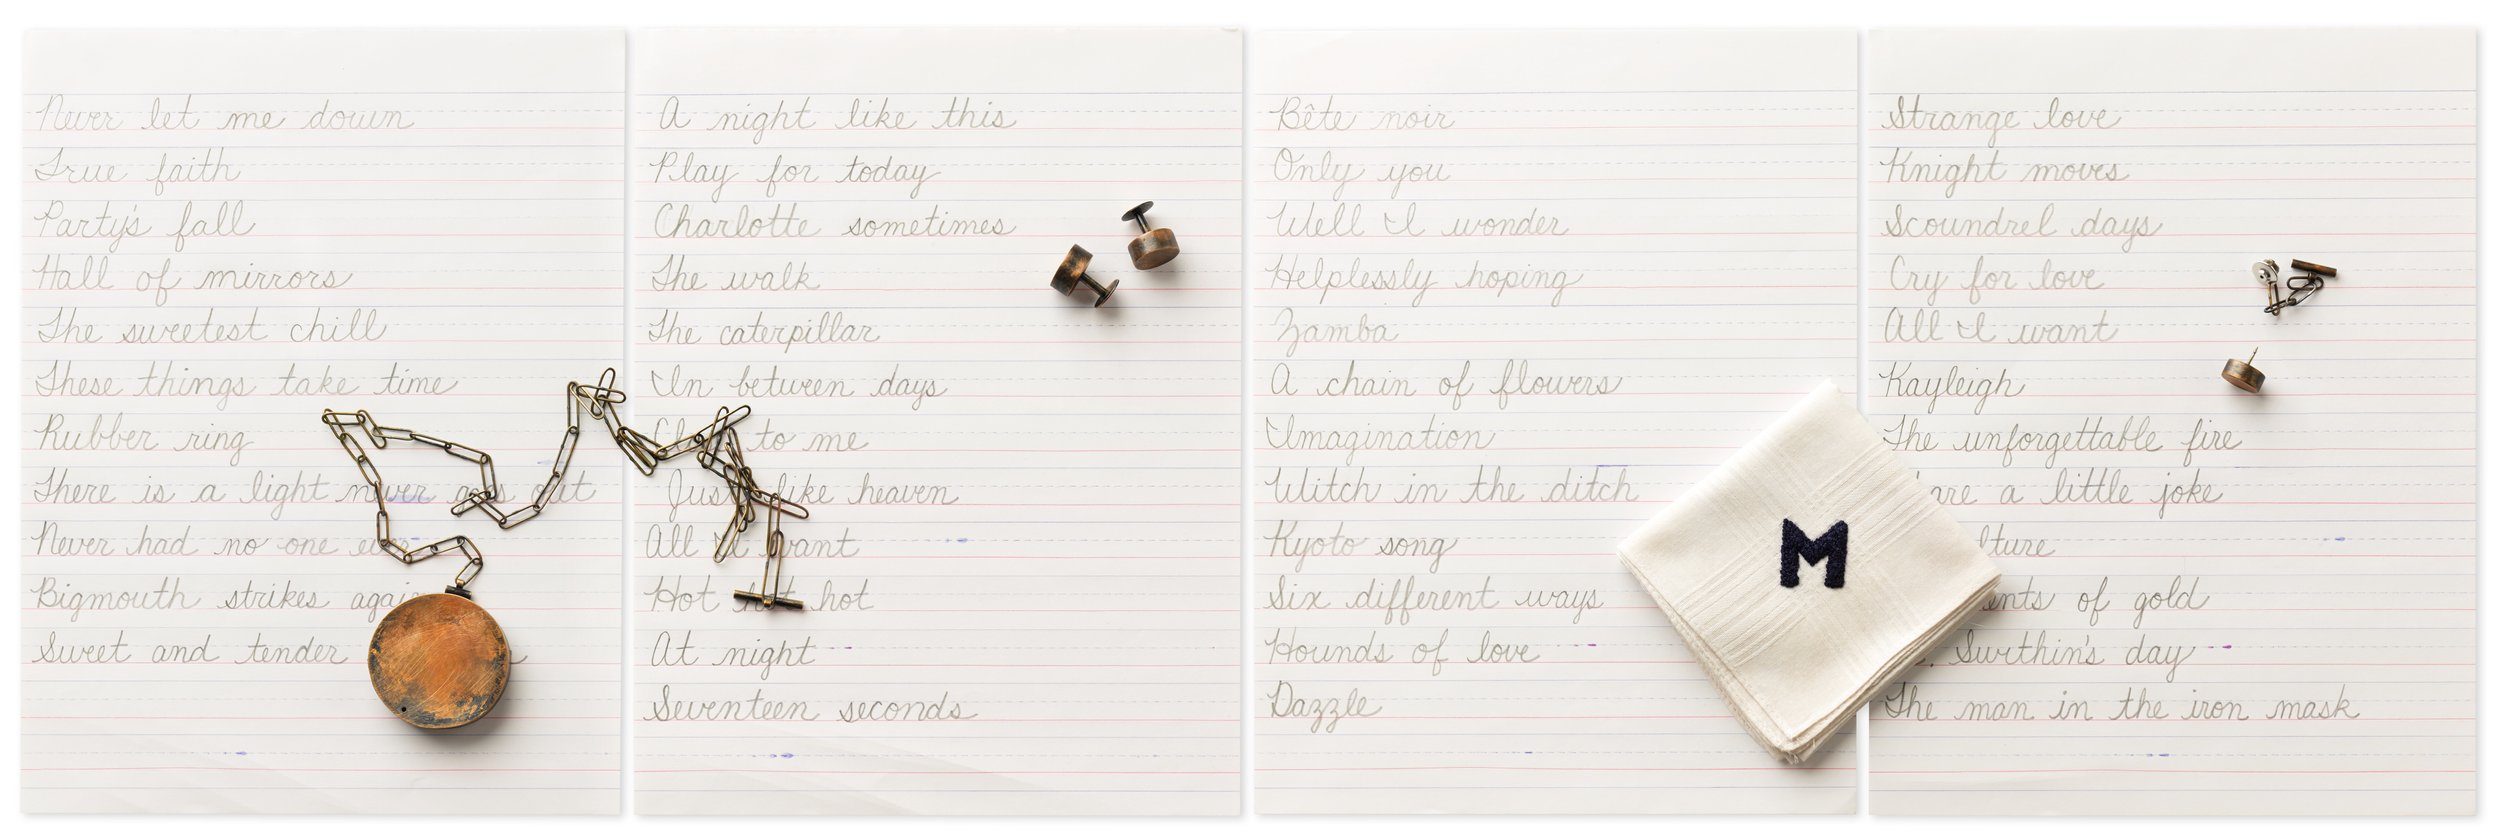 Never let me down
True faith
Party's fall
Hall of mirrors
The sweetest chill
These things take time
Rubber ring
There is a light never goes out
Never had no one ever
Bigmouth strikes again
Sweet and tender
A night like this
Play for today
Charlotte sometimes
The walk
The caterpillar
In between days
to me
Just like heaven
All I want
Hot hot hot
At night
Seventeen seconds
Bête noir
Only you
Well I wonder
Helplessly hoping
Zamba
A chain of flowers
Imagination
Witch in the ditch
Kyoto song
Six different ways
Hounds of love
Dazzle
M
Strange love
Knight moves
Scoundrel days
Cry for love
All I want
Kayleigh
The unforgettable fire
a little joke
of gold
Swithin's day
The man in the iron mask